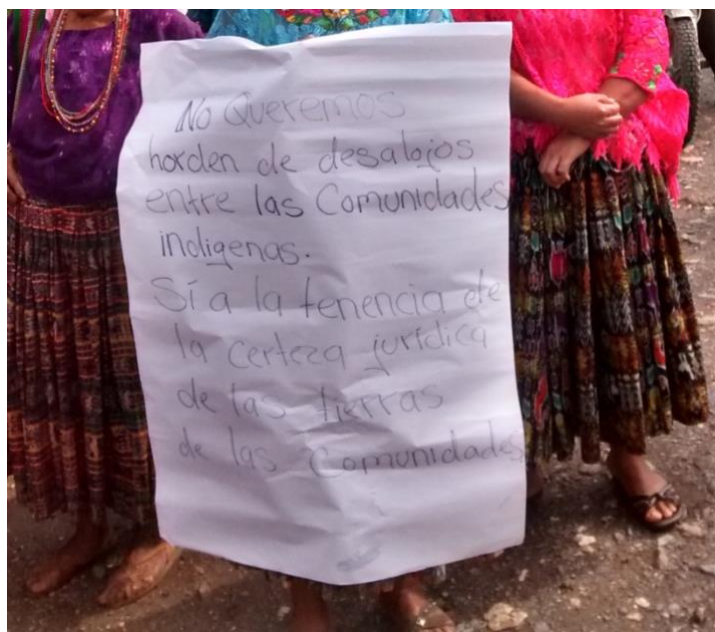 No Queremos
horden de desalojos
entre las Comunidades
indigenas.
Sí a la tenencia de
la certeza jurídica
de las tierras
de las Comunidades